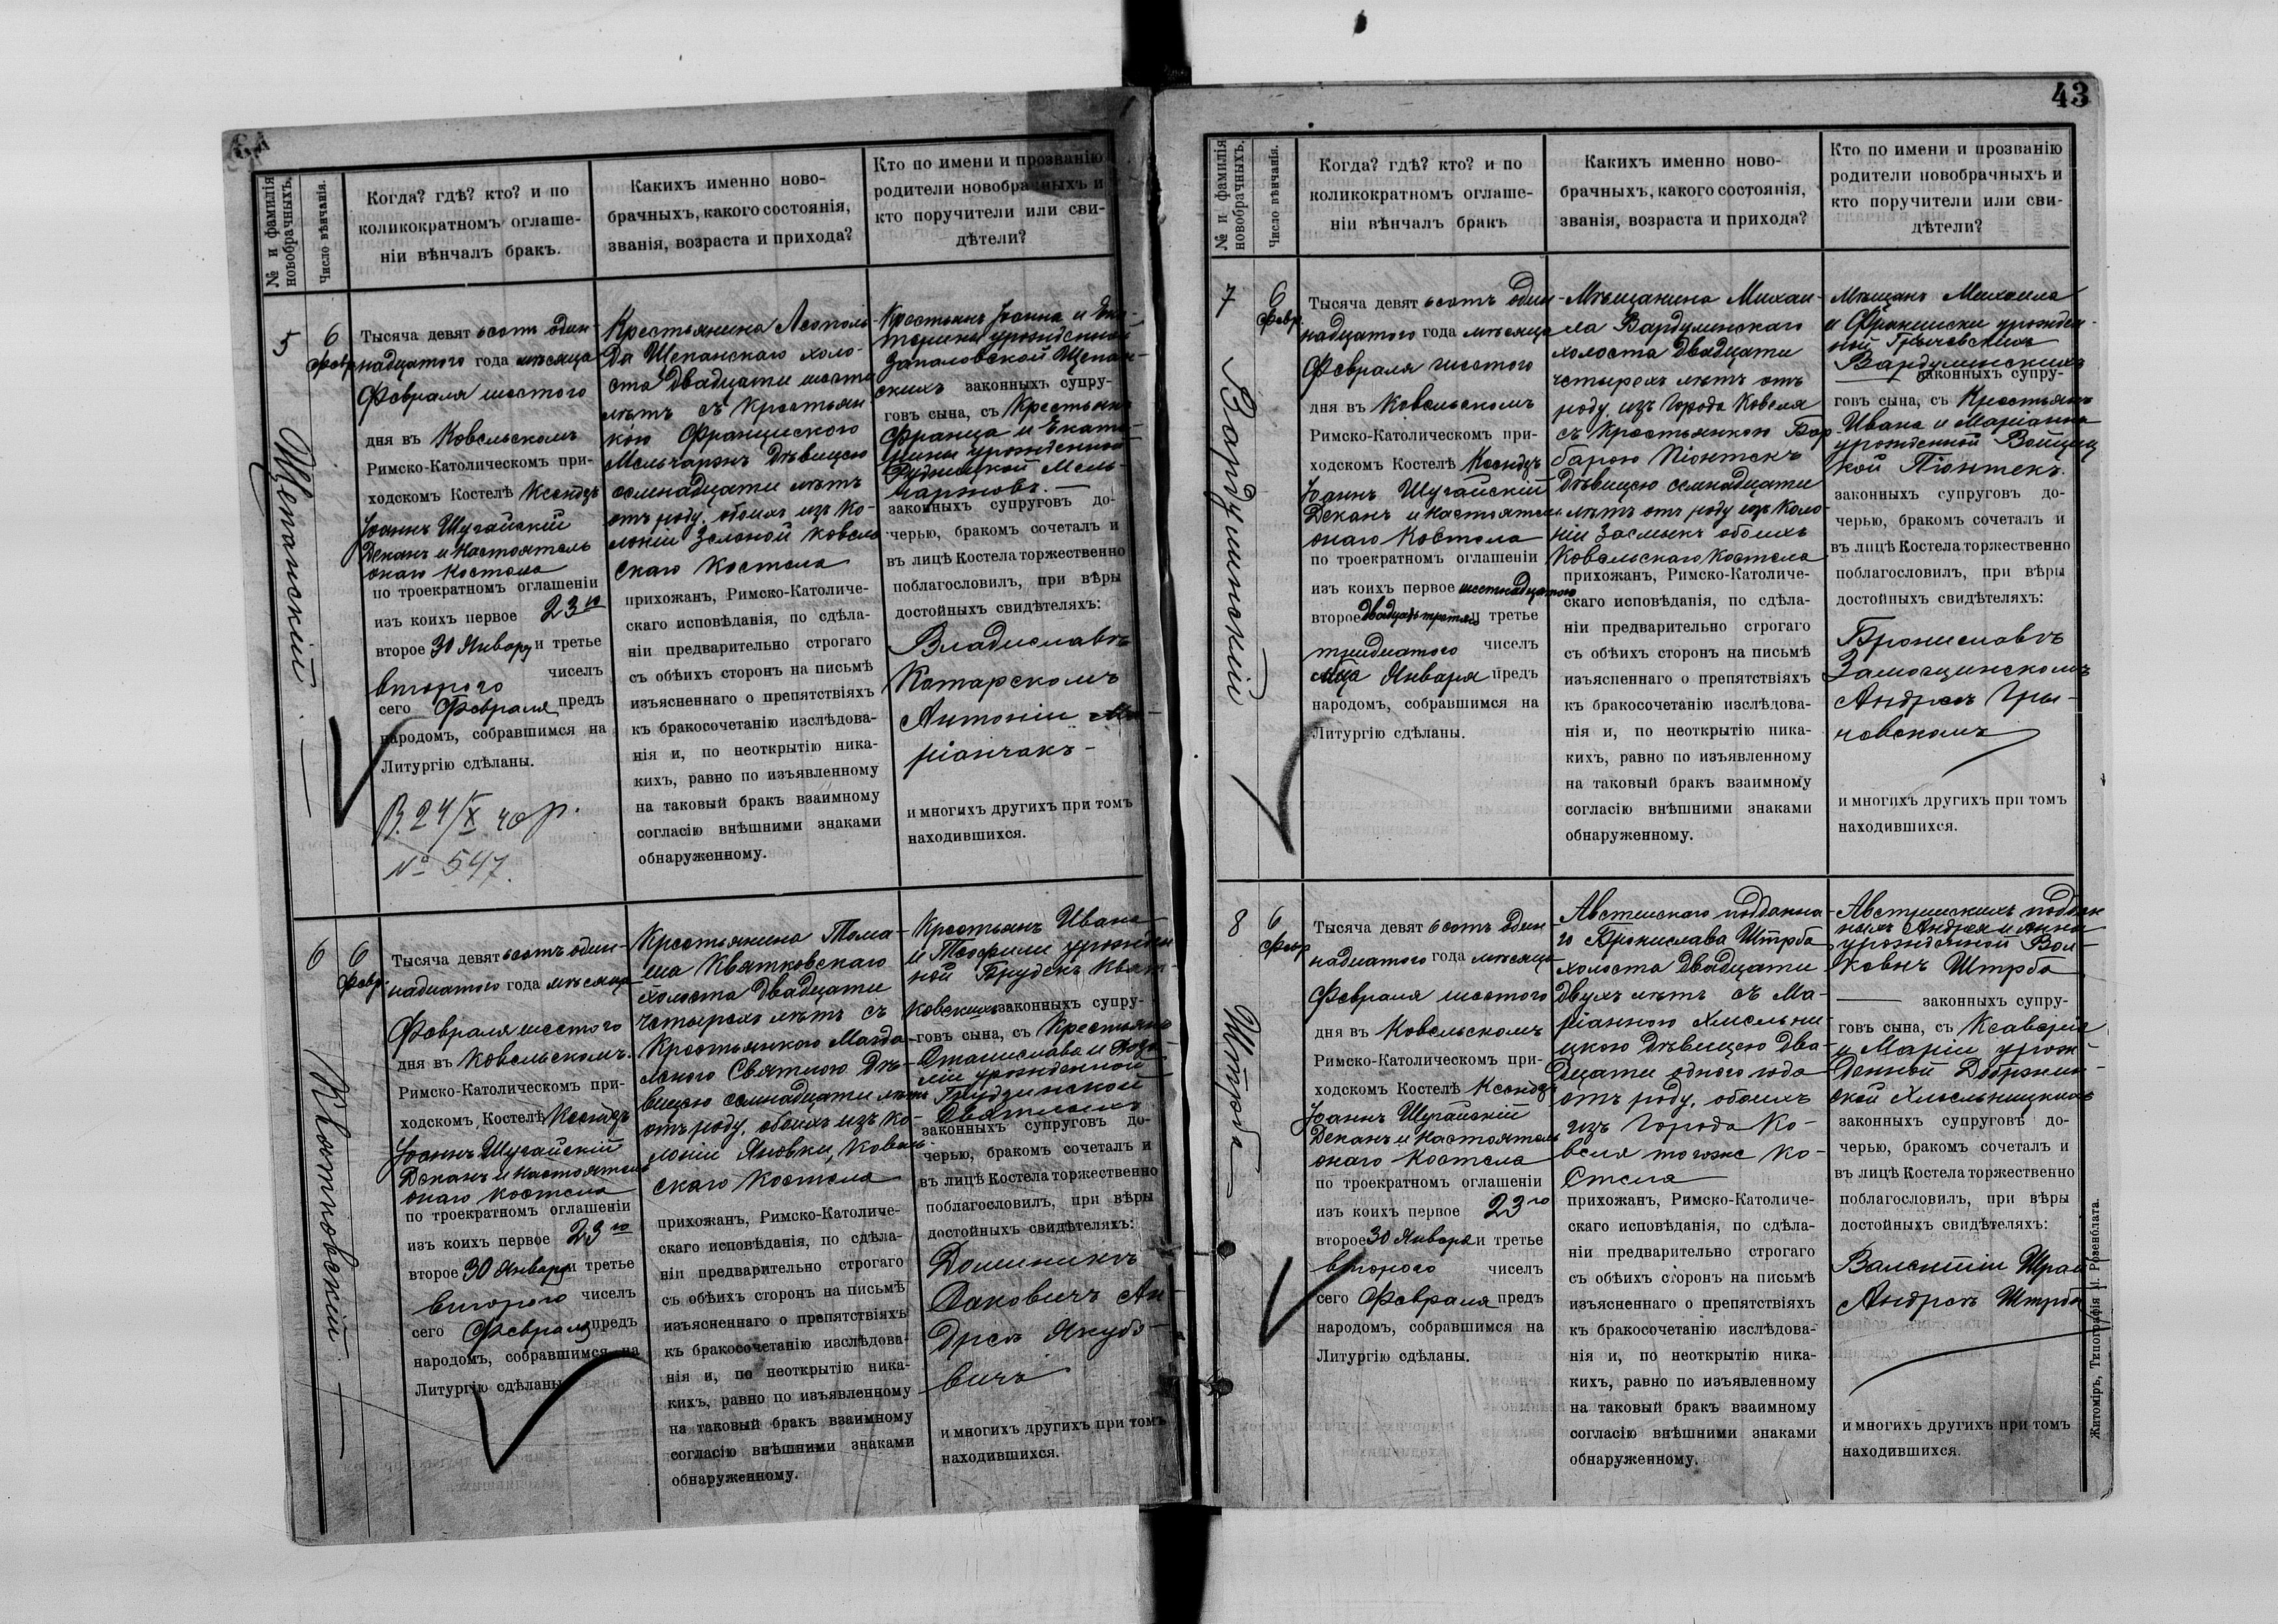 № и фамилія новобрачныхъ.
Число вѣнчанія.
Когда? гдѣ? кто? и по
коликократномъ оглаше-
ніи вѣнчалъ бракъ.
Какихъ именно ново-
брачныхъ, какого состоянія,
званія, возраста и прихода?
Кто по имени и прозванію
родители новобрачныхъ и
кто поручители или сви-
дѣтели?
5
Щепанскій.
6
Февр
Тысяча девятьсотъ один-
надцатого года мѣсяца
Февраля шестого
дня въ Ковельскомъ
Римско-Католическомъ при-
ходскомъ Костелѣ Ксендзъ
Іоаннъ Шугайскій
Деканъ и Настоятель
онаго Костела
по троекратномъ оглашеніи
изъ коихъ первое 23го
второе 30 Января и третье
второго чиселъ
сего Февраля предъ
народомъ, собравшимся на
Литургію сдѣланы.
В. 24/X 40 р.
№ 547.
Крестьянина Леополь-
да Щепанскаго холо-
ста двадцати шести
лѣтъ съ крестьян
кою Францискою
Мельчаржъ дѣвицею
осмнадцати лѣтъ
отъ роду, обоихъ изъ ко-
лоніи Зеленой Ковель
скаго Костела
прихожанъ, Римско-Католиче-
скаго исповѣданія, по сдѣла-
ніи предварительно строгаго
съ обѣихъ сторонъ на письмѣ
изъясненнаго о препятствіяхъ
къ бракосочетанію изслѣдова-
нія и, по неоткрытію ника-
кихъ, равно по изъявленному
на таковый бракъ взаимному
согласію внѣшними знаками
обнаруженному.
Крестьянъ Іоанна и Ека-
терины урожденной
Запаловской Щепан-
скихъ законныхъ супру-
говъ сына, съ Крестьянъ
Франца и Екате-
рины урожденной
Рудницкой Мель-
чаржовъ.
законныхъ супруговъ до-
черью, бракомъ сочеталъ и
въ лицѣ Костела торжественно
поблагословилъ, при вѣры
достойныхъ свидѣтеляхъ:
Владиславѣ
Катарскомъ
Антоніи Ма-
ріанчакъ
и многихъ другихъ при томъ
находившихся.
6
Квятковскій.
6
Февр.
Тысяча девятьсотъ один-
надцатого года мѣсяца
Февраля шестого
дня въ Ковельскомъ
Римско-Католическомъ при-
ходскомъ Костелѣ Ксендзъ
Іоаннъ Шугайскій
Деканъ и Настоятель
онаго Костела
по троекратномъ оглашеніи
изъ коихъ первое 23го
второе 30 Января и третье
второго чиселъ
сего Февраля предъ
народомъ, собравшимся на
Литургію сдѣланы
Крестьянина Тома-
ша Квятковскаго
холоста двадцати
четырехъ лѣтъ съ
Крестьянкою Магда-
леною Святлою дѣ-
вицею осмнадцати лѣтъ
отъ роду, обоихъ изъ ко-
лоніи Яновки, Ковель-
скаго Костела
прихожанъ, Римско-Католиче-
скаго исповѣданія, по сдѣла-
ніи предварительно строгаго
съ обѣихъ сторонъ на письмѣ
изъясненнаго о препятствіяхъ
къ бракосочетанію изслѣдова-
нія и, по неоткрытію ника-
кихъ, равно по изъявленному
на таковый бракъ взаимному
согласію внѣшними знаками
обнаруженному.
Крестьянъ Ивана
и Теофили урожден
ной Брудекъ Квят-
ковскихъ законныхъ супру-
говъ сына, съ Крестьянъ
Станислава и
урожденной
Грудзинской
законныхъ супруговъ до-
черью, бракомъ сочеталъ и
въ лицѣ Костела торжественно
поблагословилъ, при вѣры
достойныхъ свидѣтеляхъ:
Доминикѣ
Ан-
дреѣ Якубо-
вичъ
и многихъ другихъ при томъ
находившихся.
43
№ и фамилія новобрачныхъ.
Число вѣнчанія.
Когда? гдѣ? кто? и по
коликократномъ оглаше-
ніи вѣнчалъ бракъ
Какихъ именно ново-
брачныхъ, какого состоянія,
званія, возраста и прихода?
Кто по имени и прозванію
родители новобрачныхъ и
кто поручители или сви-
дѣтели?
7
Вардулинскій
6
Февр.
Тысяча девятьсотъ один-
надцатого года мѣсяца
Февраля шестого
дня въ Ковельскомъ
Римско-Католическомъ при-
ходскомъ Костелѣ Ксендзъ
Іоаннъ Шугайскій
Деканъ и Настоятель
онаго Костела
по троекратномъ оглашеніи
изъ коихъ первое шестнадцатого
второе двадцать третьяго и третье
тридцатого чиселъ
Января предъ
народомъ, собравшимся на
Литургію сдѣланы.
Мѣщанина Михаи-
ла Вардулинскаго
холоста двадцати
четырехъ лѣтъ отъ
роду, изъ города Ковеля
съ крестьянкою Вар-
барою Піонтекъ
дѣвицею осмнадцати
лѣтъ отъ роду изъ коло-
ніи Засмыкъ обоихъ
Ковельскаго Костела
прихожанъ, Римско-Католиче-
скаго исповѣданія, по сдѣла-
ніи предварительно строгаго
съ обѣихъ сторонъ на письмѣ
изъясненнаго о препятствіяхъ
къ бракосочетанію изслѣдова-
нія и, по неоткрытію ника-
кихъ, равно по изъявленному
на таковый бракъ взаимному
согласію внѣшними знаками
обнаруженному.
Мѣщанъ Михаила
и Франциски урожден-
ной
Вардулинскихъ
законныхъ супру-
говъ сына, съ Крестьянъ
Ивана и Маріанны
урожденной Войциц
кой Піонтекъ.
законныхъ супруговъ до-
черью, бракомъ сочеталъ и
въ лицѣ Костела торжественно
поблагословилъ, при вѣры
достойныхъ свидѣтеляхъ:
Брониславѣ
Замосцинскомъ
Андреѣ Гры-
човскомъ
и многихъ другихъ при томъ
находившихся.
8
Штрба
6
Февр
Тысяча девятьсотъ один
надцатого года мѣсяца
Февраля шестого
дня въ Ковельскомъ
Римско-Католическомъ при-
ходскомъ Костелѣ Ксендзъ
Іоаннъ Шугайскій
Деканъ и Настоятель
онаго Костела
по троекратномъ оглашеніи
изъ коихъ первое 23го
второе 30 Января и третье
второго чиселъ
сего Февраля предъ
народомъ, собравшимся на
Литургію сдѣланы.
Австрійскаго подданна-
го Бронислава Штрба
холоста двадцати
двухъ лѣтъ съ Ма-
ріанною Хмѣльни-
цкою дѣвицею два-
дцати одного года
отъ роду, обоихъ
изъ города Ко-
веля тогоже Ко-
стела
прихожанъ, Римско-Католиче-
скаго исповѣданія, по сдѣла-
ніи предварительно строгаго
съ обѣихъ сторонъ на письмѣ
изъясненнаго о препятствіяхъ
къ бракосочетанію изслѣдова-
нія и, по неоткрытію ника-
кихъ, равно по изъявленному
на таковый бракъ взаимному
согласію внѣшними знаками
обнаруженному.
Австрійскихъ поддан
ныхъ Андрея и Анны
урожденной Вол-
ковыхъ Штрба
законныхъ супру-
говъ сына, съ Ксаверія
и Маріи урож-
денной Добржин-
ской Хмѣльницкихъ
законныхъ супруговъ до-
черью, бракомъ сочеталъ и
въ лицѣ Костела торжественно
поблагословилъ, при вѣры
достойныхъ свидѣтеляхъ:
Валентіи
Андреѣ Штрба
и многихъ другихъ при томъ
находившихся.
Житоміръ, Типографія Розенблата.